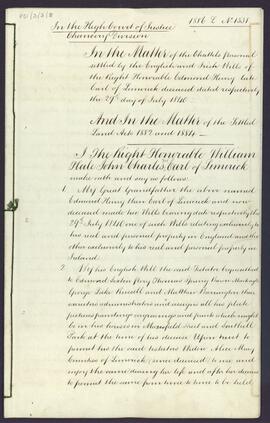 In the High Court of Justice 1886 L No 1551
Chancery Division
In the Matter of the Chattels personal
settled by the English and Irish Wills of
the Right Honorable Edmund Henry late
Earl of Limerick deceased dated respectively
the 29th day of July 1840
And In the Matter of the Settled
Land Acts 1882 and 1884 —
I The Right Honorable William
Hale John Charles Earl of Limerick
make oath and say as follows
1. My Great Grandfather the above named
Edmund Henry then Earl of Limerick and now
deceased made two Wills bearing date respectively the
29th July 1840 one of such Wills relating exclusively to
his real and personal property in England and the
other exclusively to his real and personal property in
Ireland
2. By his English Will the said Testator bequeathed
to Edmund Sexton Pery Thomas Spring
George Lake Russell and Matthew Barrington their
executors administrators and assigns all his plate
pictures paintings engravings and prints which might
be in his houses in Mansfield Street and Southill
Park at the time of his decease Upon trust to
permit his the said testators Widow Alice Mary
Countess of Limerick (since deceased) to use and
enjoy the same during her life and after her decease
to permit the same from time to time to be held